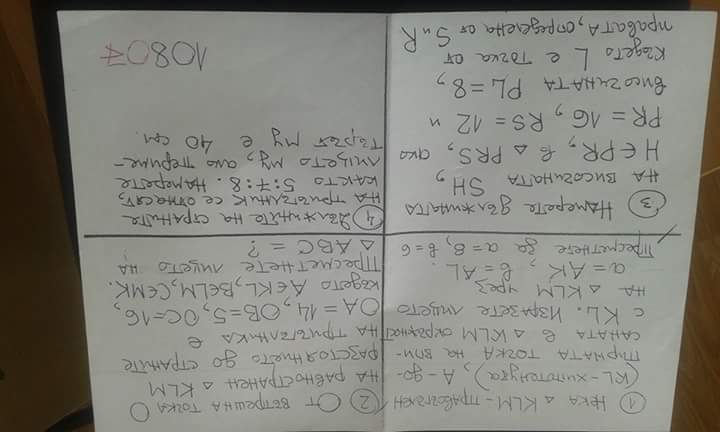 ① Нека △ KLM - правоъгълен
(KL-хипотенуза), A - до-
пирната точка на впи-
саната в △ KLM окръжност
с KL. Изразете лицето
на △ KLM чрез
a = AK, b = AL.
Пресметнете за a = 8, b = 6
② От вътрешна точка O
на равностранен △ KLM
разстоянието до страните
на триъгълника е
OA = 14, OB = 5, OC = 16,
където A∈KL, B∈LM, C∈MK.
Пресметнете лицето на
△ ABC = ?
③ Намерете дължината
на височината SH,
H∈PR, в △ PRS, ако
PR = 16, RS = 12 и
височината PL = 8,
където L е точка от
правата, определена от S и R
④ Дължините на страните
на триъгълник се отнасят,
както 5:7:8. Намерете
лицето му, ако периме-
търът му е 40 см.
10807